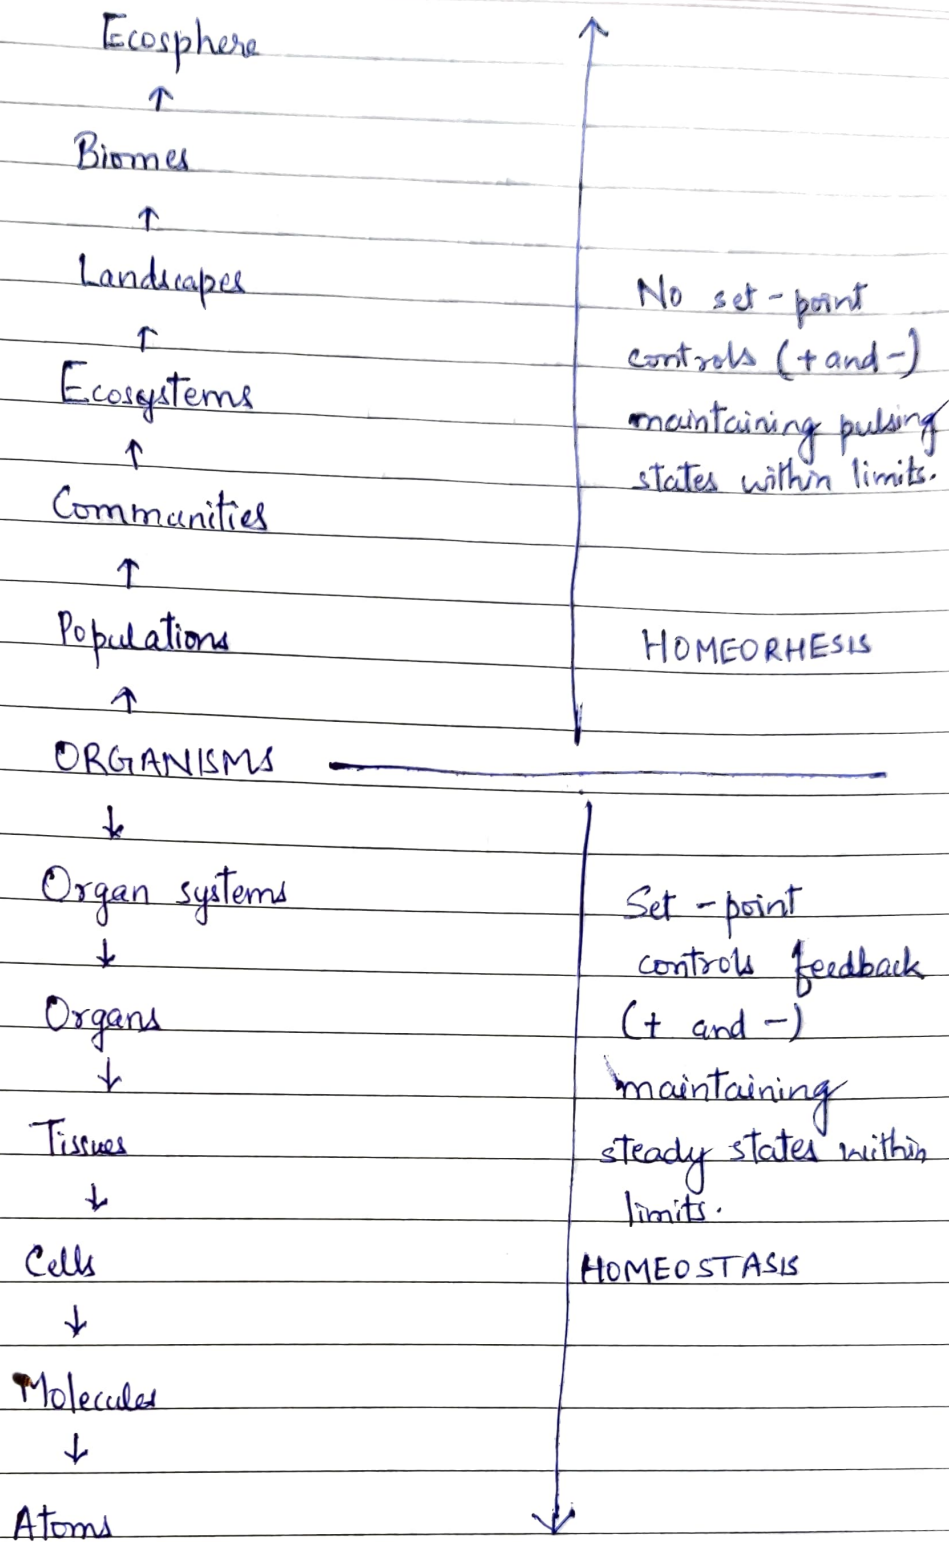 Ecosphere
↑
Biomes
↑
Landscapes
↑
Ecosystems
↑
Communities
↑
Populations
↑
ORGANISMS
↓
Organ systems
↓
Organs
↓
Tissues
↓
Cells
↓
Molecules
↓
Atoms
No set-point
controls (+ and -)
maintaining pulsing
states within limits.
HOMEORHESIS
Set-point
controls feedback
(+ and -)
maintaining
steady states within
limits.
HOMEOSTASIS